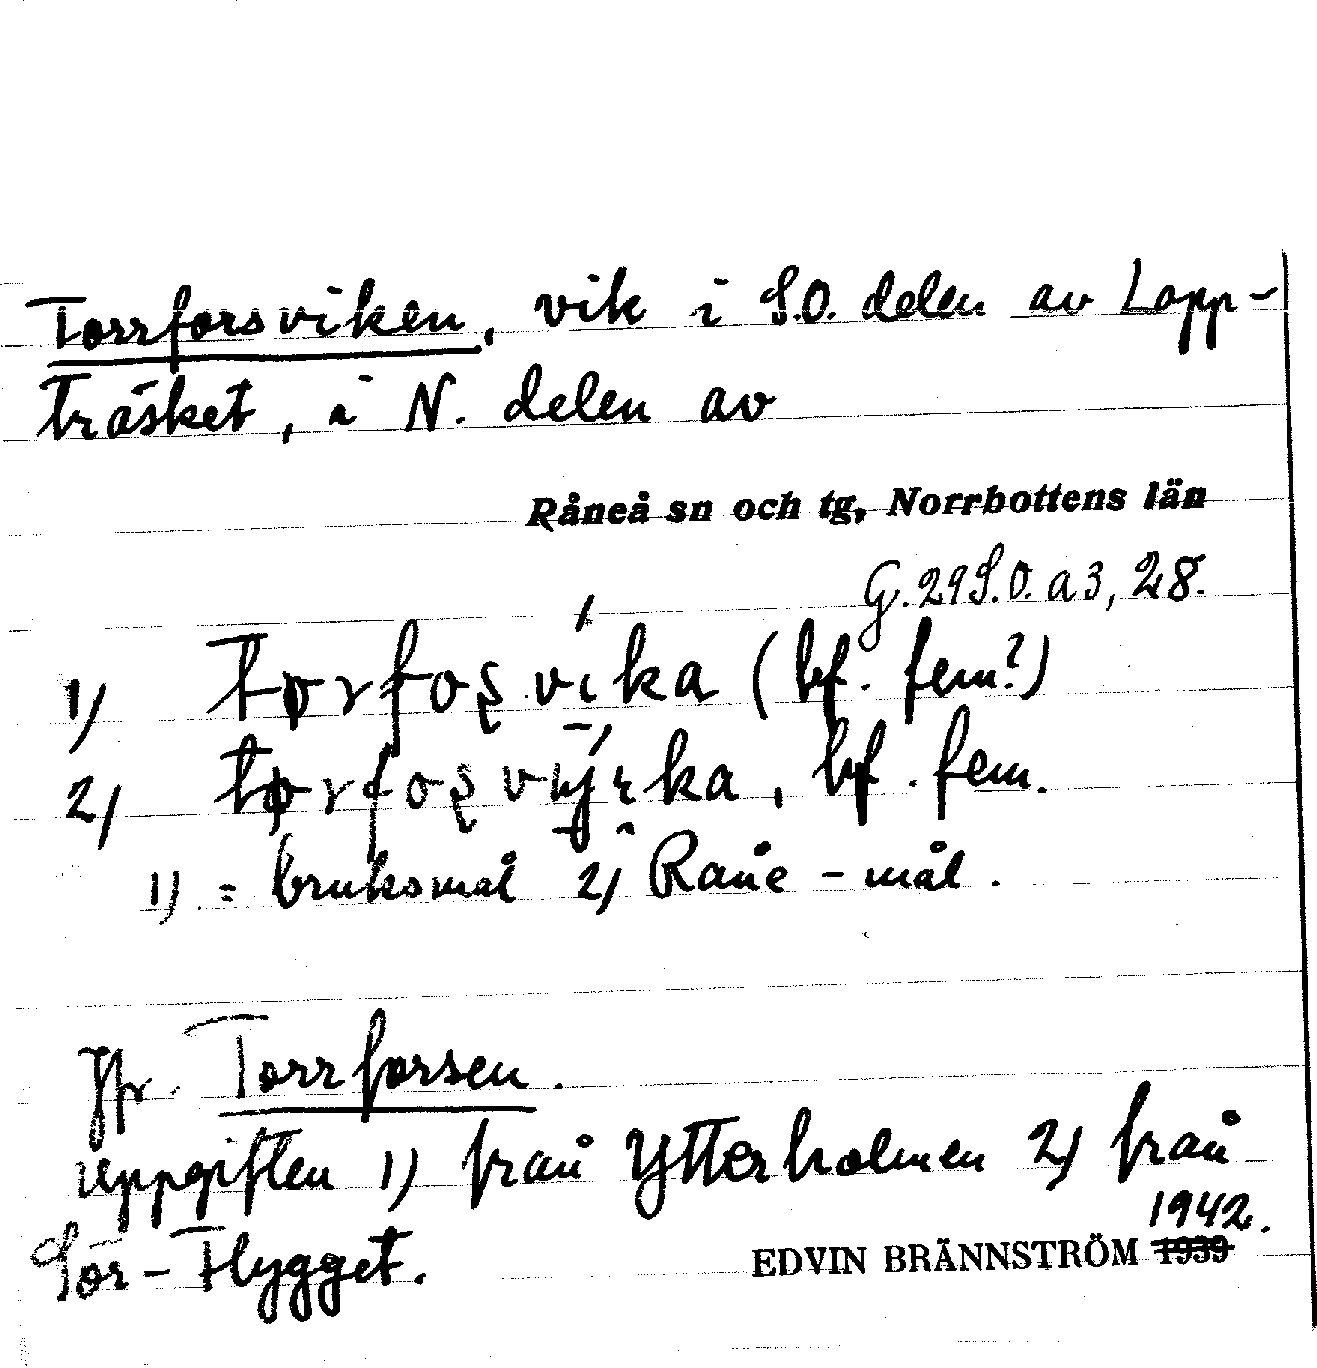 Torrforsviken, vik i S.O. delen av Lapp-
träsket, i N. delen av
Råneå sn och tg, Norrbottens län
G. 29 S.O. a 3, 28.
1) tørfoʂvíka (bf. fem?)
2) bf. fem.
1) = bruksmål 2) Råne-mål.
Jfr. Torrforsen.
uppgiften 1) från Ytterholmen 2) från
1942.
Sör-Flygget.
EDVIN BRÄNNSTRÖM 1939